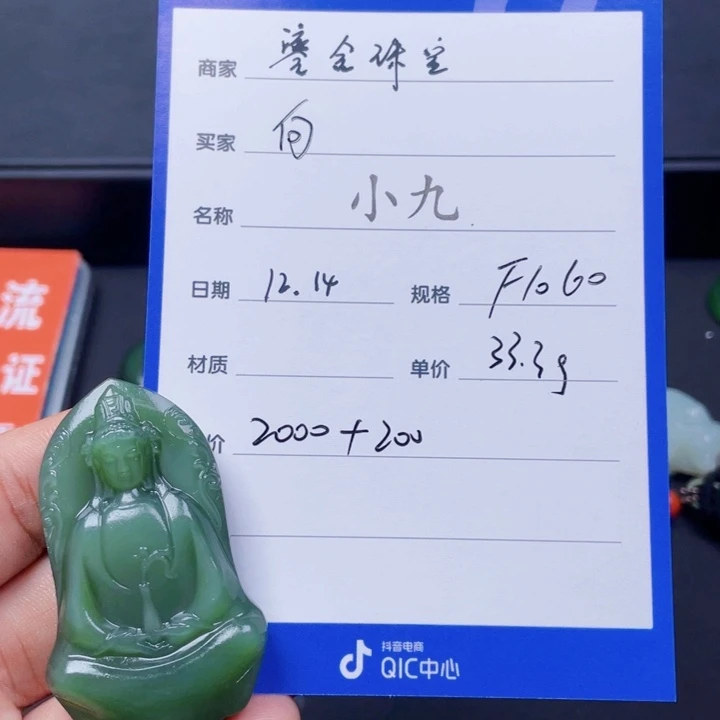 商家 鎏金珠宝
买家 向
名称 小九
日期 12.14 规格 F1060
材质 单价 33.3g
价 2000+200
流
证
抖音电商
QIC中心